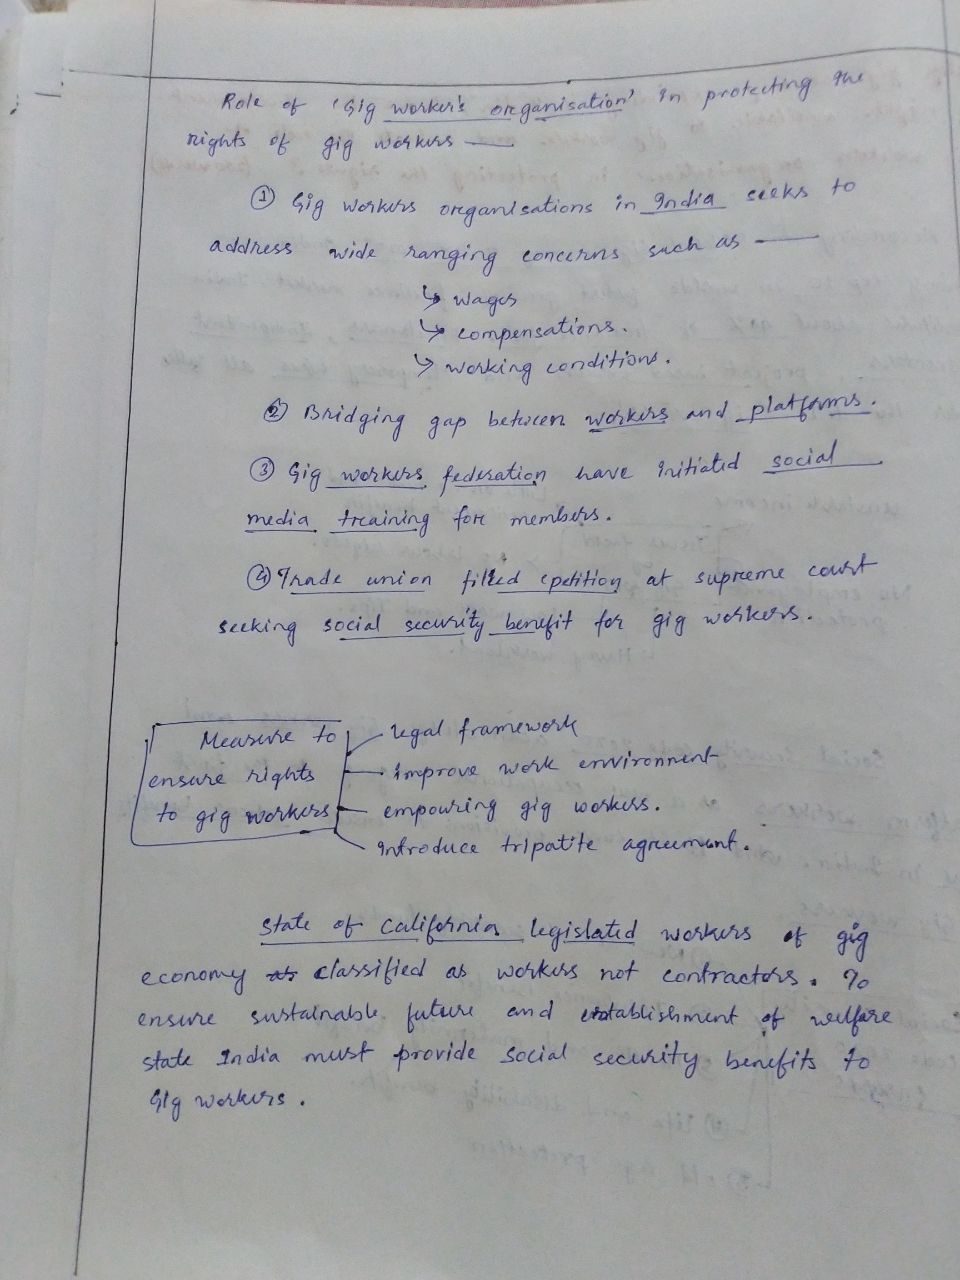 Role of 'Gig worker's organisation' in protecting the
rights of gig workers —
① Gig workers organisations in India seeks to
address wide ranging concerns such as —
↳ wages
↳ compensations.
↳ working conditions.
② Bridging gap between workers and platforms.
③ Gig workers federation have initiated social
media training for members.
④ Trade union filled petition at supreme court
seeking social security benefit for gig workers.
Measure to
ensure rights
to gig workers
legal framework
improve work environment
empouring gig workers.
introduce tripatite agreement.
State of California legislated workers of gig
economy classified as workers not contractors. To
ensure sustainable future and establishment of welfare
state India must provide social security benefits to
gig workers.